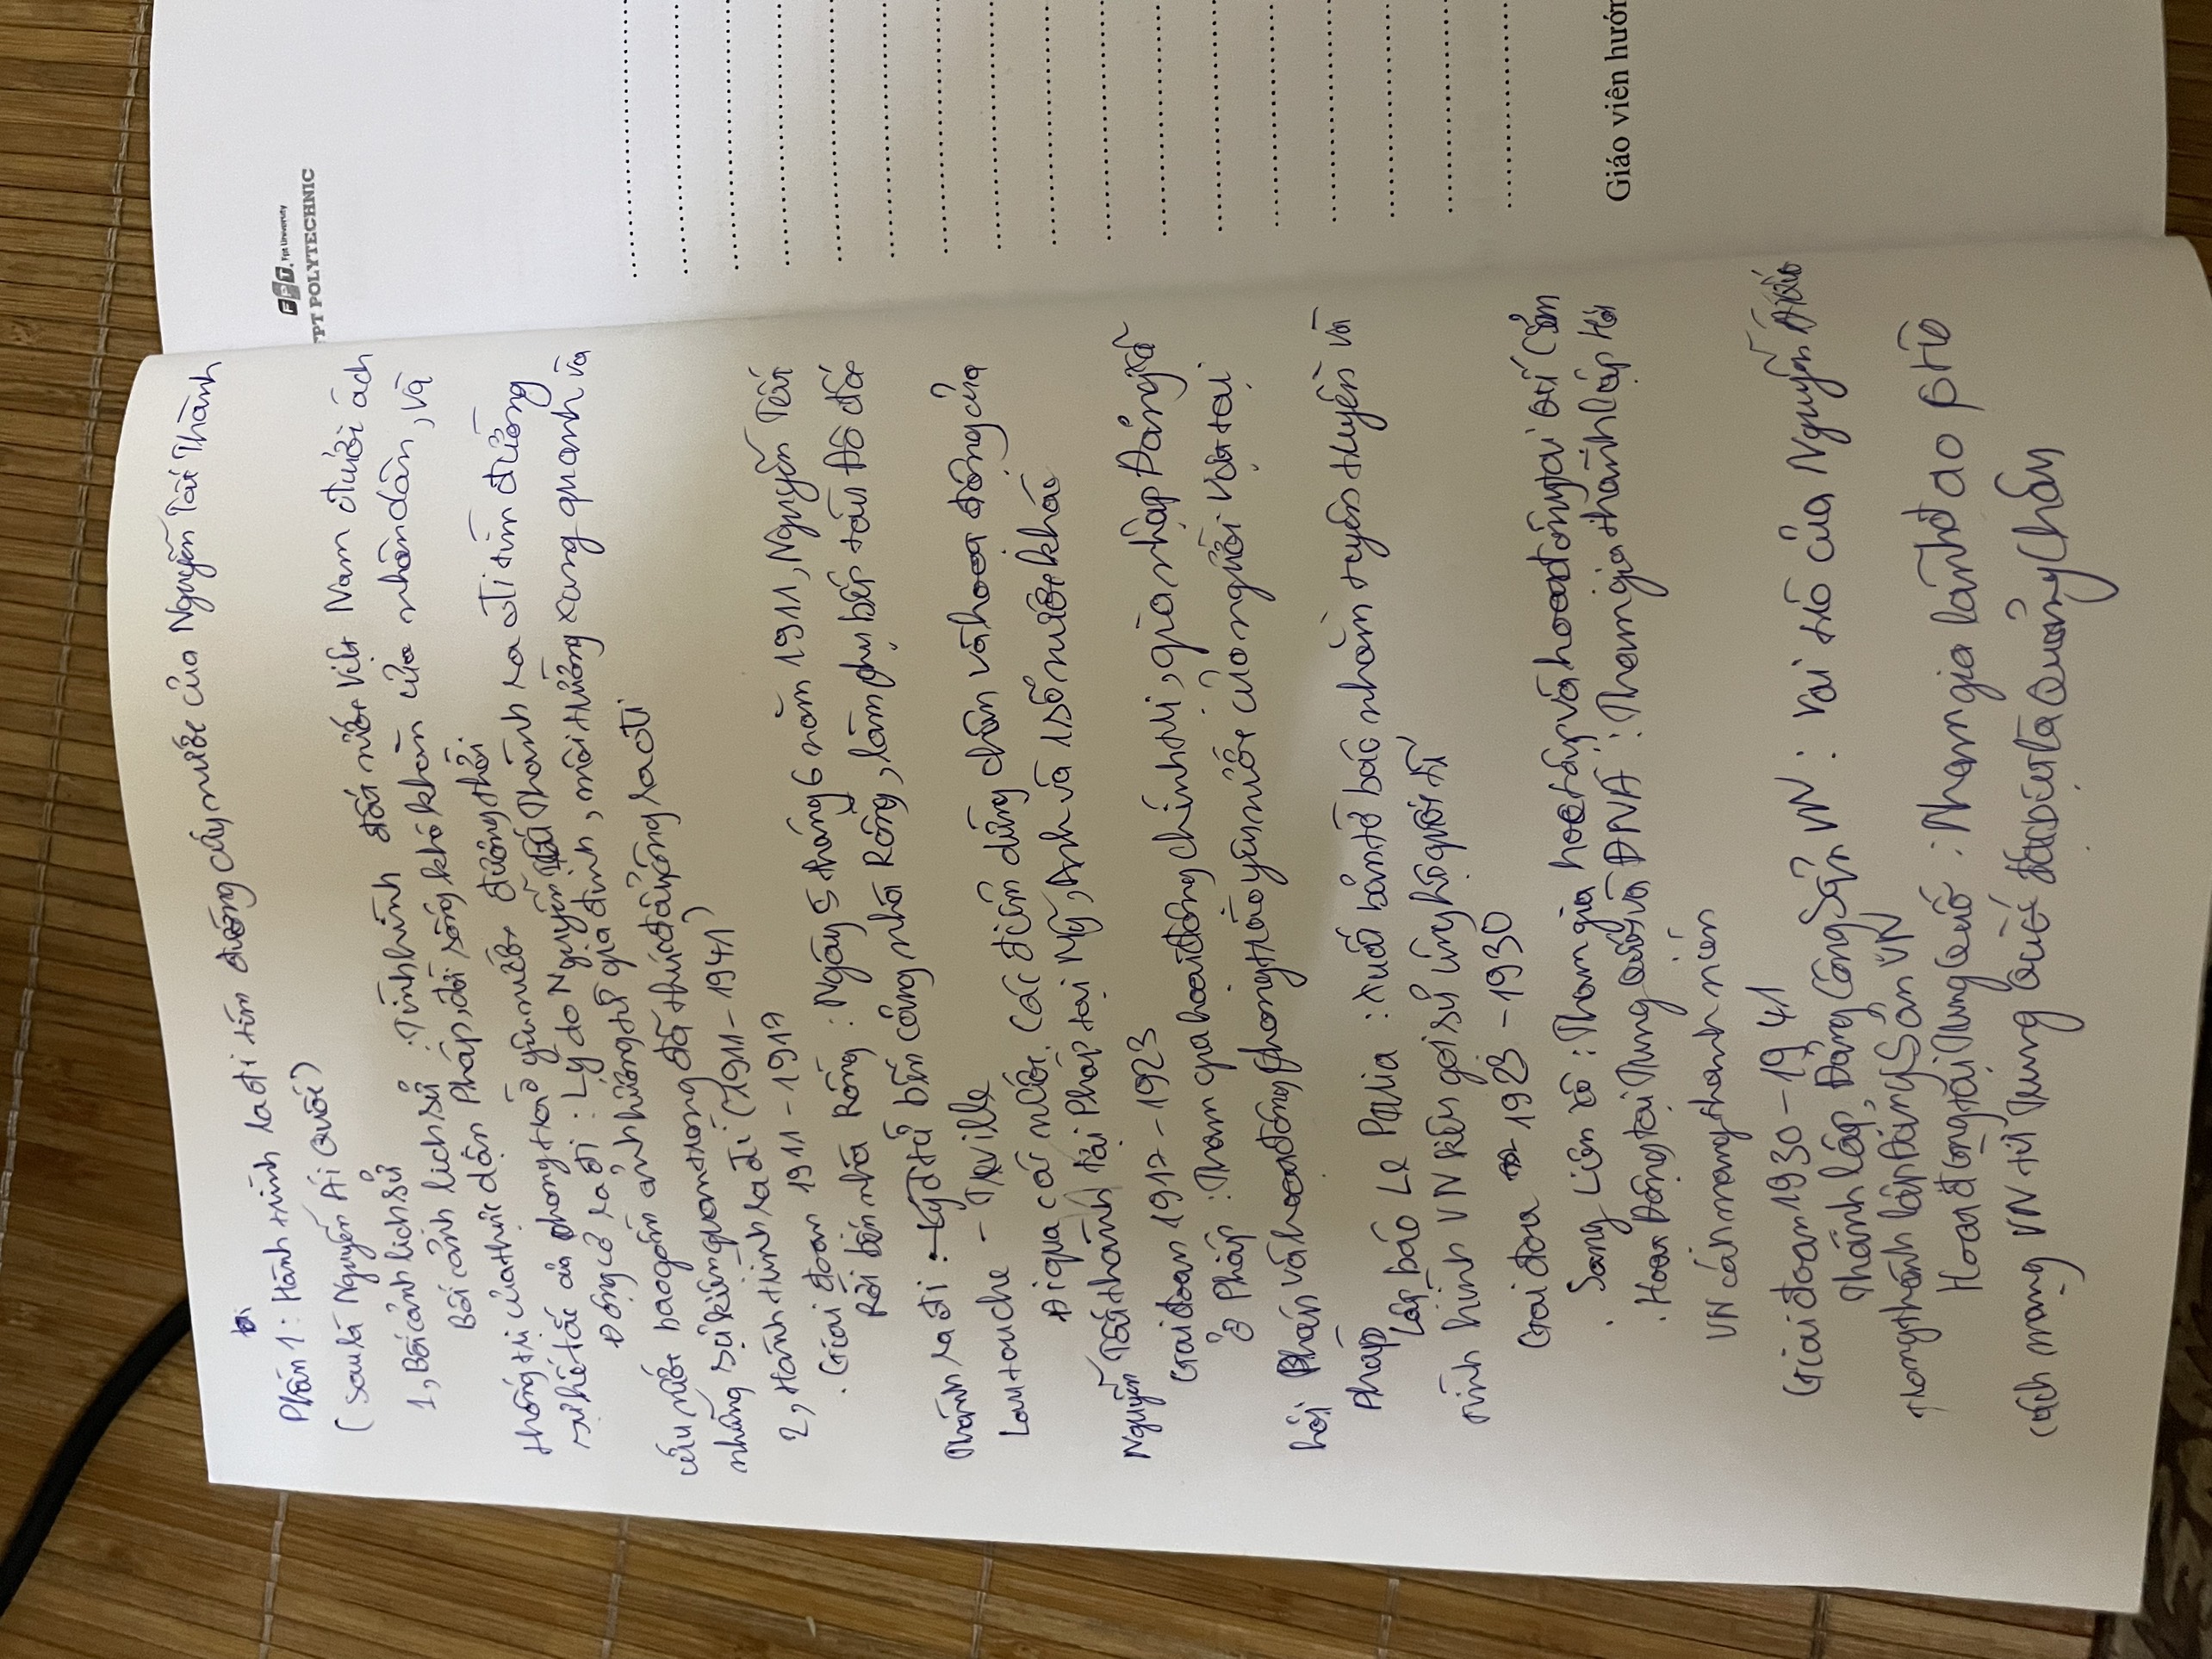 Phần 1: Hành trình ra đi tìm đường cứu nước của Nguyễn Tất Thành
(sau là Nguyễn Ái Quốc)
1, Bối cảnh lịch sử
Bối cảnh lịch sử: Tình hình đất nước Việt Nam dưới ách
thống trị của thực dân Pháp, đời sống khó khăn của nhân dân, và
sự bế tắc của phong trào yêu nước đương thời.
Động cơ ra đi: Lý do Nguyễn Tất Thành ra đi tìm đường
cứu nước bao gồm ảnh hưởng từ gia đình, môi trường xung quanh và
những sự kiện quan trọng đã thúc đẩy ông ra đi
2, Hành trình ra đi (1911 - 1941)
. Giai đoạn 1911 - 1917
Rời bến nhà Rồng: Ngày 5 tháng 6 năm 1911, Nguyễn Tất
Thành ra đi từ bến cảng nhà Rồng, làm phụ bếp tàu Đô đốc
Latouche - Tréville
Đi qua các nước: Các điểm dừng chân và hoạt động của
Nguyễn Tất Thành tại Pháp tại Mỹ, Anh và 1 số nước khác
Giai đoạn 1917 - 1923
Ở Pháp: Tham gia hoạt động chính trị, gia nhập Đảng Xã
hội Pháp và hoạt động phong trào yêu nước của người Việt tại
Pháp
Lập báo Le Paria: xuất bản tờ báo nhằm tuyên truyền về
tình hình VN kêu gọi sự ủng hộ quốc tế
Giai đoạn 1923 - 1930
. Sang Liên Xô: Tham gia học tập và hoạt động tại
. Hoạt Động tại Trung Quốc và ĐNÁ: Tham gia thành lập Hội
VN cách mạng thanh niên
Giai đoạn 1930 - 1941
Thành lập Đảng Cộng Sản VN: Vai trò của Nguyễn Ái Quốc
trong thành lập Đảng Cộng Sản VN
Hoạt động tại Trung Quốc: Tham gia lãnh đạo phtr
Cách mạng VN từ Trung Quốc đặc biệt là Quảng Châu
FPT. Fpt University
FPT POLYTECHNIC
Giáo viên hướn